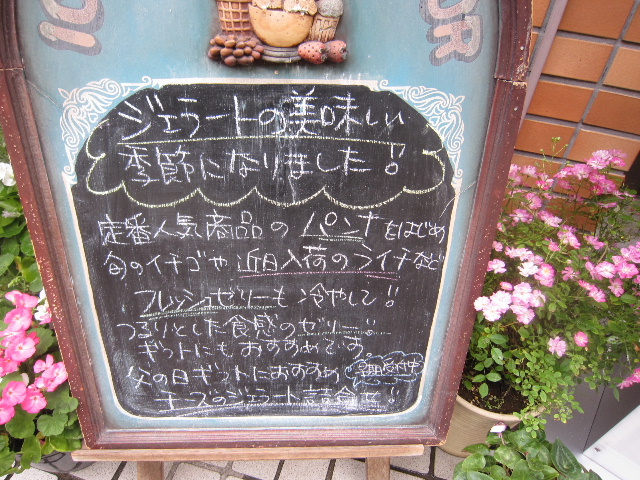 DI
OR
ジェラートの美味しい
季節になりました!
定番人気商品のパンナをはじめ
旬のイチゴや近日入荷のライチなど
フレッシュゼリーも冷やして!!
つるりとした食感のゼリー!!
ギフトにもおすすめです
父の日ギフトにおすすめ 早期受付中
チーズのジェラート